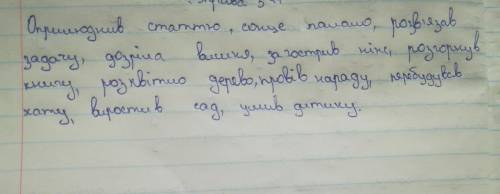 Вправа 5
Оприлюднив статтю, сонце палало, розв'язав
задачу, дозріла вишня, загострив кінс, розгорнув
книгу, розквітло дерево, провів нараду, перебудував
хату, виростив сад, умив дитину.